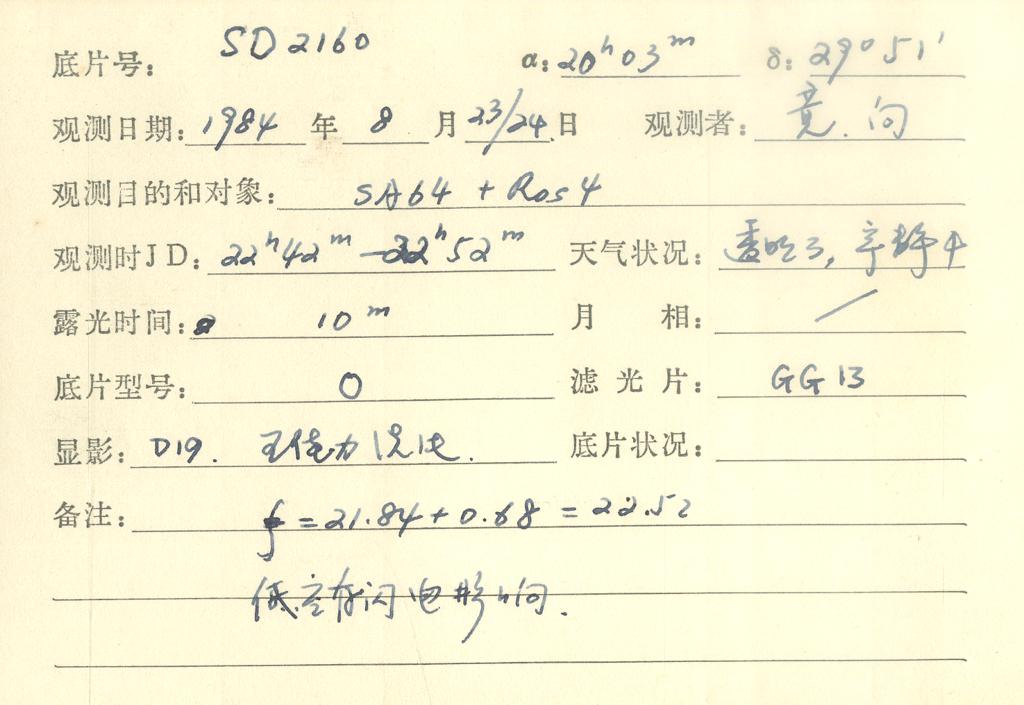 底片号: SD2160 α: 20ʰ03ᵐ δ: 29°51′
观测日期: 1984 年 8 月 23/24 日 观测者: 竟.向
观测目的和对象: SA64 + Ros4
观测时JD: 22ʰ42ᵐ-22ʰ52ᵐ 天气状况: 透明3,宁静4
露光时间: 10ᵐ 月 相: /
底片型号: O 滤光片: GG13
显影: D19. 冲洗.
底片状况:
备注: f=21.84+0.68=22.52
低空有闪电影响.